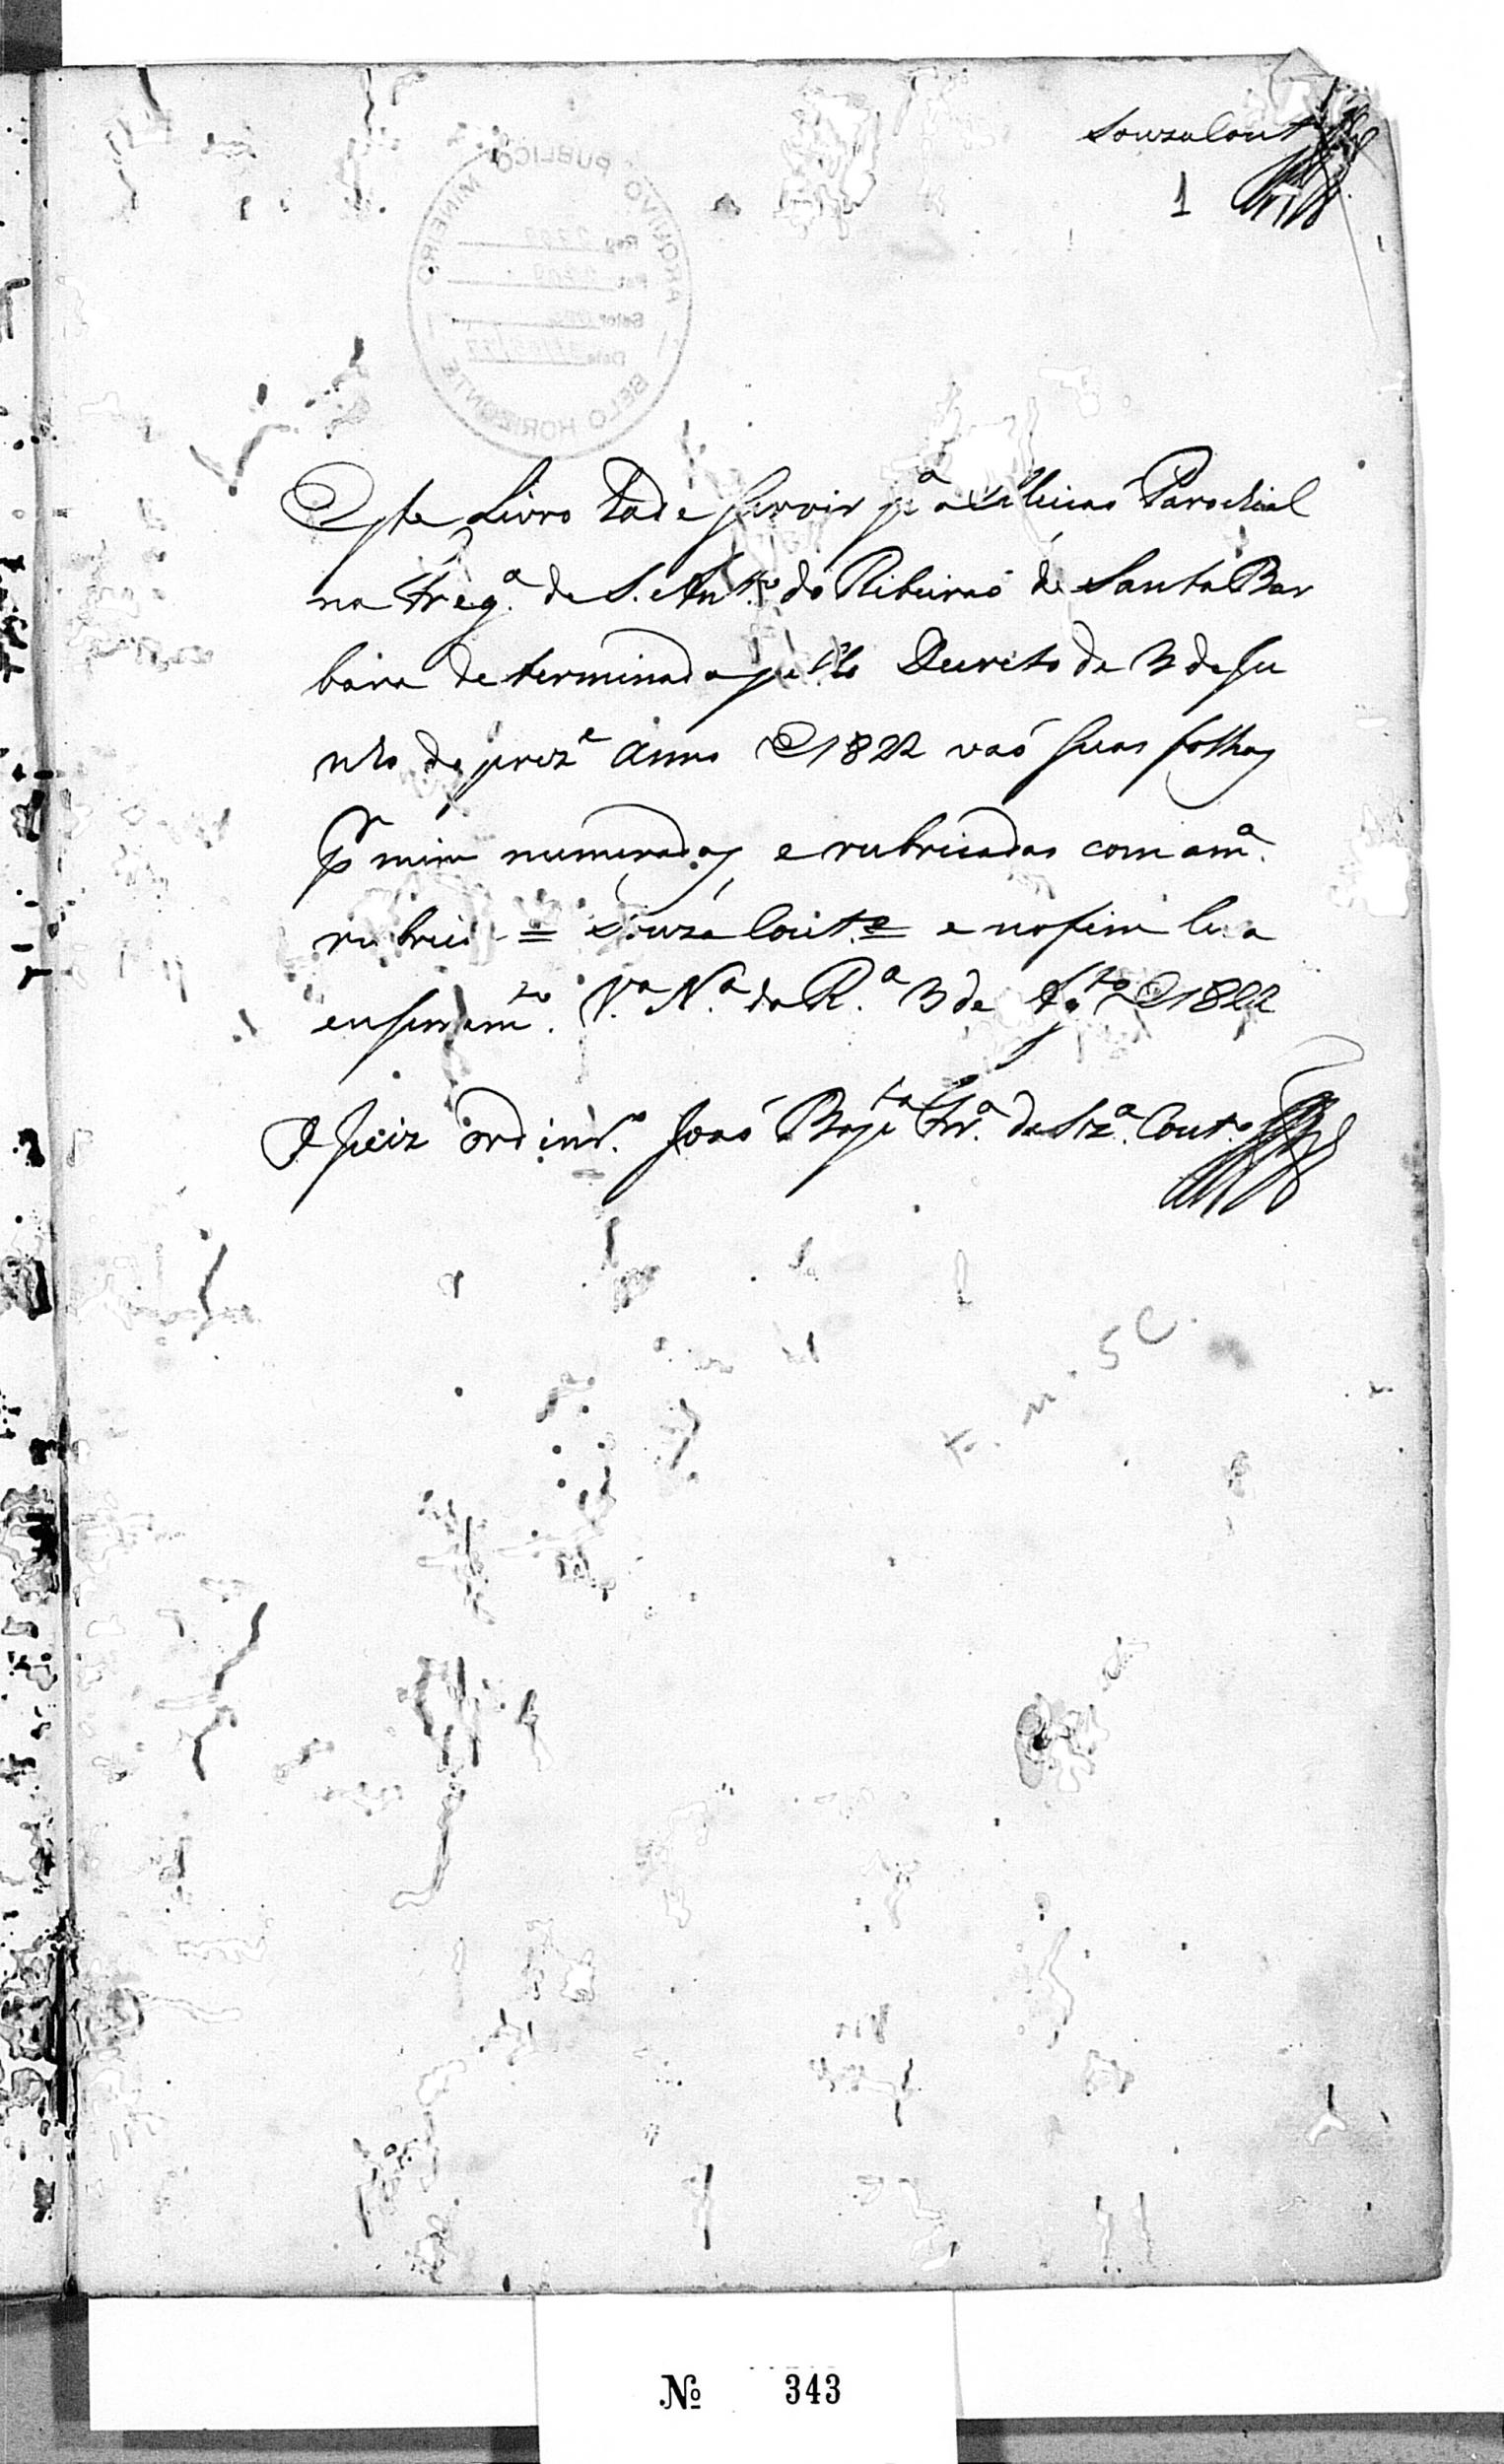 Souza Cout.º
1
ARQUIVO PUBLICO MINEIRO
BELO HORIZONTE
Este Livro hade servir p.ª a Eleicaõ Parochial
na Freg.ª de S. Ant.º do Ribeiraõ de Santa Bar
bara determinada pello Decreto de 3 de Ju
nho do prez.e anno de 1822 vaõ suas folhas
p.r mim numeradas, e rubricadas com a m.ª
rubrica = Souza Cout.º = e no fim leva
enserram.to V.ª N.ª da R.ª 3 de Ag.to de 1822
O Juiz ordin.º Joaõ Bap.ta Fr.ª de Sz.ª Cout.º
Nº 343